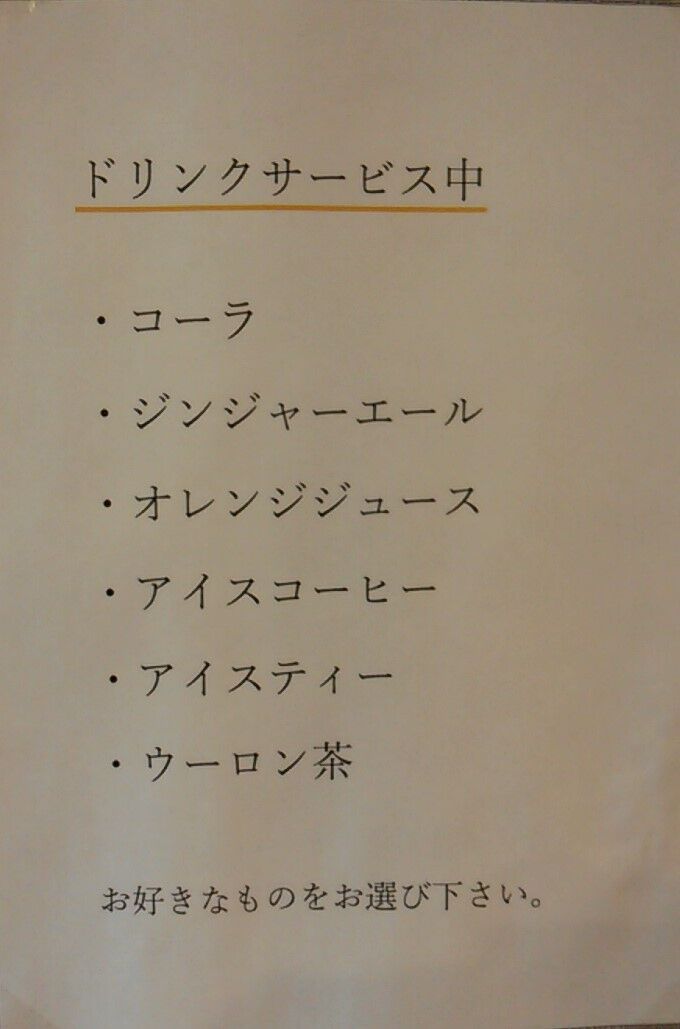 ドリンクサービス中
・コーラ
・ジンジャーエール
・オレンジジュース
・アイスコーヒー
・アイスティー
・ウーロン茶
お好きなものをお選び下さい。